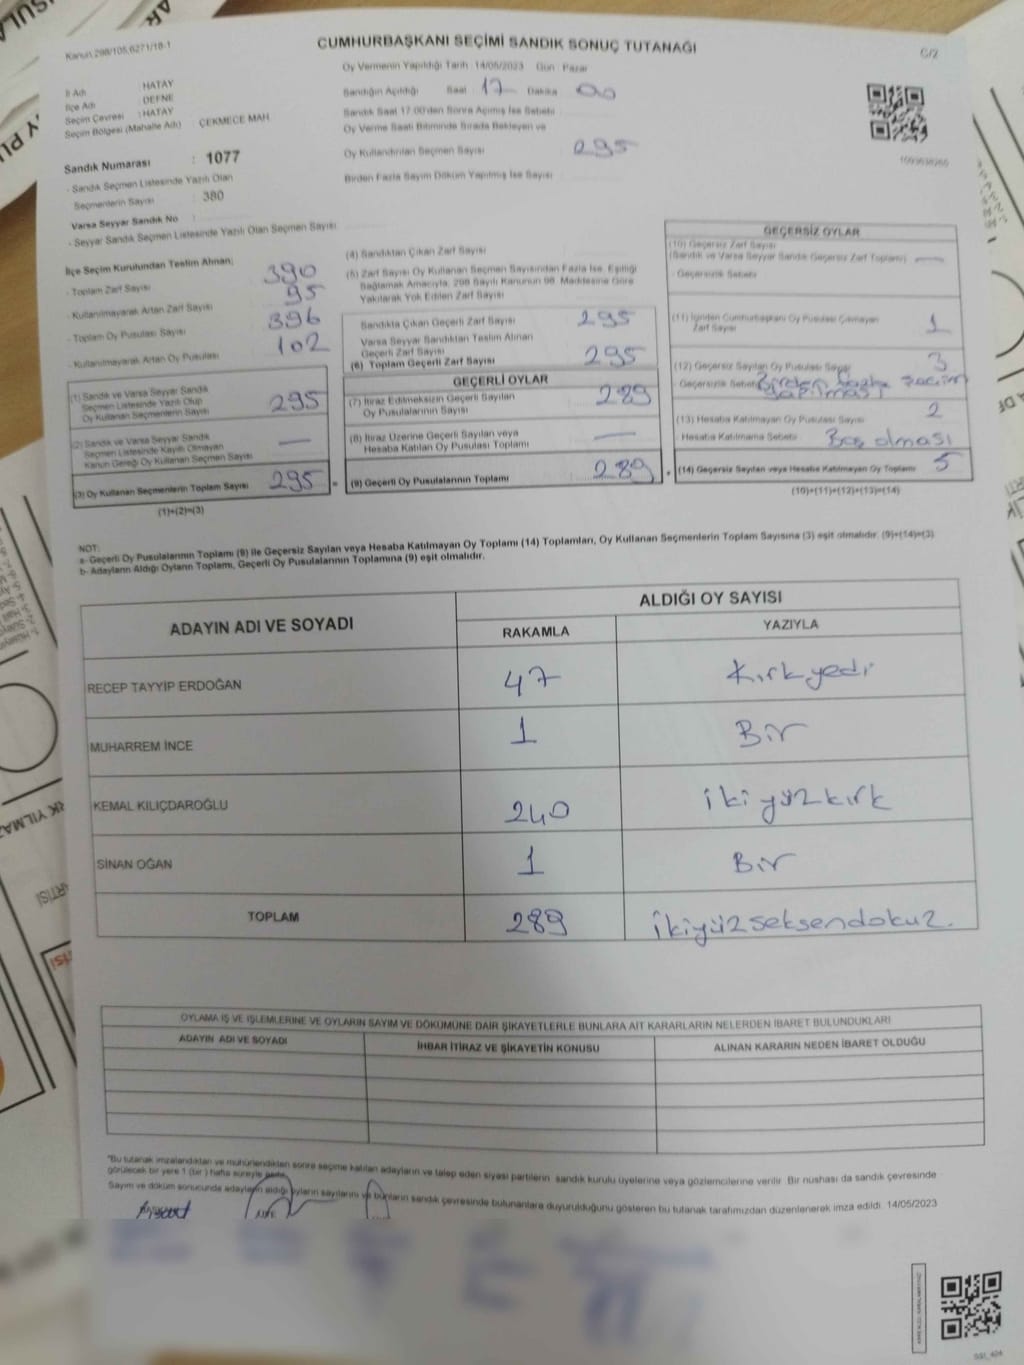 Kanun 298/105,6271/18-1
CUMHURBAŞKANI SEÇİMİ SANDIK SONUÇ TUTANAĞI
C/2
Oy Vermenin Yapıldığı Tarih :14/05/2023 Gün : Pazar
İl Adı : HATAY
İlçe Adı : DEFNE
Seçim Çevresi : HATAY
Seçim Bölgesi (Mahalle Adı) : ÇEKMECE MAH.
Sandığın Açıldığı Saat : 17 Dakika : 00
Sandık Saat 17.00'den Sonra Açılmış İse Sebebi :
Oy Verme Saati Bitiminde Sırada Bekleyen ve
Oy Kullandırılan Seçmen Sayısı : 295
Birden Fazla Sayım Döküm Yapılmış İse Sayısı :
Sandık Numarası : 1077
- Sandık Seçmen Listesinde Yazılı Olan
Seçmenlerin Sayısı : 380
Varsa Seyyar Sandık No :
- Seyyar Sandık Seçmen Listesinde Yazılı Olan Seçmen Sayısı:
İlçe Seçim Kurulundan Teslim Alınan;
- Toplam Zarf Sayısı 390
- Kullanılmayarak Artan Zarf Sayısı 95
- Toplam Oy Pusulası Sayısı 396
- Kullanılmayarak Artan Oy Pusulası 102
(1) Sandık ve Varsa Seyyar Sandık
Seçmen Listesinde Yazılı Olup
Oy Kullanan Seçmenlerin Sayısı 295
(2) Sandık ve Varsa Seyyar Sandık
Seçmen Listesinde Kayıtlı Olmayan
Kanun Gereği Oy Kullanan Seçmen Sayısı —
(3) Oy Kullanan Seçmenlerin Toplam Sayısı 295 =
(1)+(2)=(3)
(4) Sandıktan Çıkan Zarf Sayısı
(5) Zarf Sayısı Oy Kullanan Seçmen Sayısından Fazla İse, Eşitliği
Sağlamak Amacıyla, 298 Sayılı Kanunun 98. Maddesine Göre
Yakılarak Yok Edilen Zarf Sayısı
Sandıkta Çıkan Geçerli Zarf Sayısı 295
Varsa Seyyar Sandıktan Teslim Alınan
Geçerli Zarf Sayısı
(6) Toplam Geçerli Zarf Sayısı 295
GEÇERLİ OYLAR
(7) İtiraz Edilmeksizin Geçerli Sayılan
Oy Pusulalarının Sayısı 289
(8) İtiraz Üzerine Geçerli Sayılan veya
Hesaba Katılan Oy Pusulası Toplamı —
(9) Geçerli Oy Pusulalarının Toplamı 289 +
GEÇERSİZ OYLAR
(10) Geçersiz Zarf Sayısı
(Sandık ve Varsa Seyyar Sandık Geçersiz Zarf Toplamı) —
- Geçersizlik Sebebi
(11) İçinden Cumhurbaşkanı Oy Pusulası Çıkmayan
Zarf Sayısı 1
(12) Geçersiz Sayılan Oy Pusulası Sayısı 3
- Geçersizlik Sebebi Birden fazla seçim
yapılması
(13) Hesaba Katılmayan Oy Pusulası Sayısı 2
- Hesaba Katılmama Sebebi Boş olması
(14) Geçersiz Sayılan veya Hesaba Katılmayan Oy Toplamı 5
(10)+(11)+(12)+(13)=(14)
NOT:
a- Geçerli Oy Pusulalarının Toplamı (9) ile Geçersiz Sayılan veya Hesaba Katılmayan Oy Toplamı (14) Toplamları, Oy Kullanan Seçmenlerin Toplam Sayısına (3) eşit olmalıdır. (9)+(14)=(3)
b- Adayların Aldığı Oyların Toplamı, Geçerli Oy Pusulalarının Toplamına (9) eşit olmalıdır.
ADAYIN ADI VE SOYADI
ALDIĞI OY SAYISI
RAKAMLA YAZIYLA
RECEP TAYYİP ERDOĞAN 47 Kırkyedi
MUHARREM İNCE 1 Bir
KEMAL KILIÇDAROĞLU 240 ikiyüzkırk
SİNAN OĞAN 1 Bir
TOPLAM 289 ikiyüzseksendokuz.
OYLAMA İŞ VE İŞLEMLERİNE VE OYLARIN SAYIM VE DÖKÜMÜNE DAİR ŞİKAYETLERLE BUNLARA AİT KARARLARIN NELERDEN İBARET BULUNDUKLARI
ADAYIN ADI VE SOYADI İHBAR İTİRAZ VE ŞİKAYETİN KONUSU ALINAN KARARIN NEDEN İBARET OLDUĞU
*Bu tutanak imzalandıktan ve mühürlendikten sonra seçime katılan adayların ve talep eden siyasi partilerin sandık kurulu üyelerine veya gözlemcilerine verilir. Bir nüshası da sandık çevresinde
görülecek bir yere 1 (bir) hafta süreyle asılır.
Sayım ve döküm sonucunda adayların aldığı oyların sayılarını ve bunların sandık çevresinde bulunanlara duyurulduğunu gösteren bu tutanak tarafımızdan düzenlenerek imza edildi. 14/05/2023